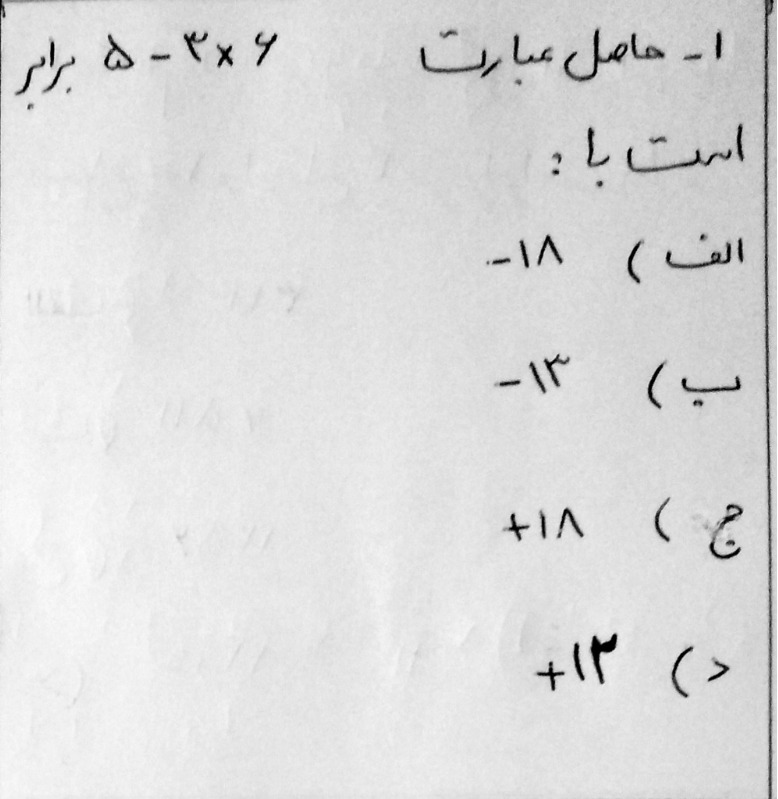 ۱- حاصل عبارت ۵ - ۳ × ۶ برابر
است با :
الف ) -۱۸
ب ) -۱۳
ج ) +۱۸
د ) +۱۳